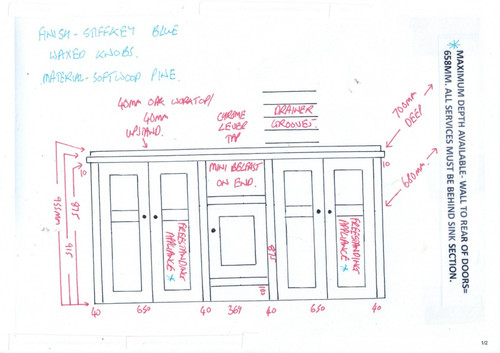 FINISH - STIFFKEY BLUE
WAXED KNOBS.
MATERIAL - SOFTWOOD PINE.
40MM OAK WORKTOP/
40MM
UPSTAND.
CHROME
LEVER
TAP
DRAINER
GROOVES.
700mm
DEEP
680mm
* MAXIMUM DEPTH AVAILABLE- WALL TO REAR OF DOORS=
658MM. ALL SERVICES MUST BE BEHIND SINK SECTION.
10
MINI BELFAST
ON END.
10
955mm
975
915
FREESTANDING
APPLIANCE *
FREESTANDING
APPLIANCE *
100
40 650 40 369 40 650 40
1/2